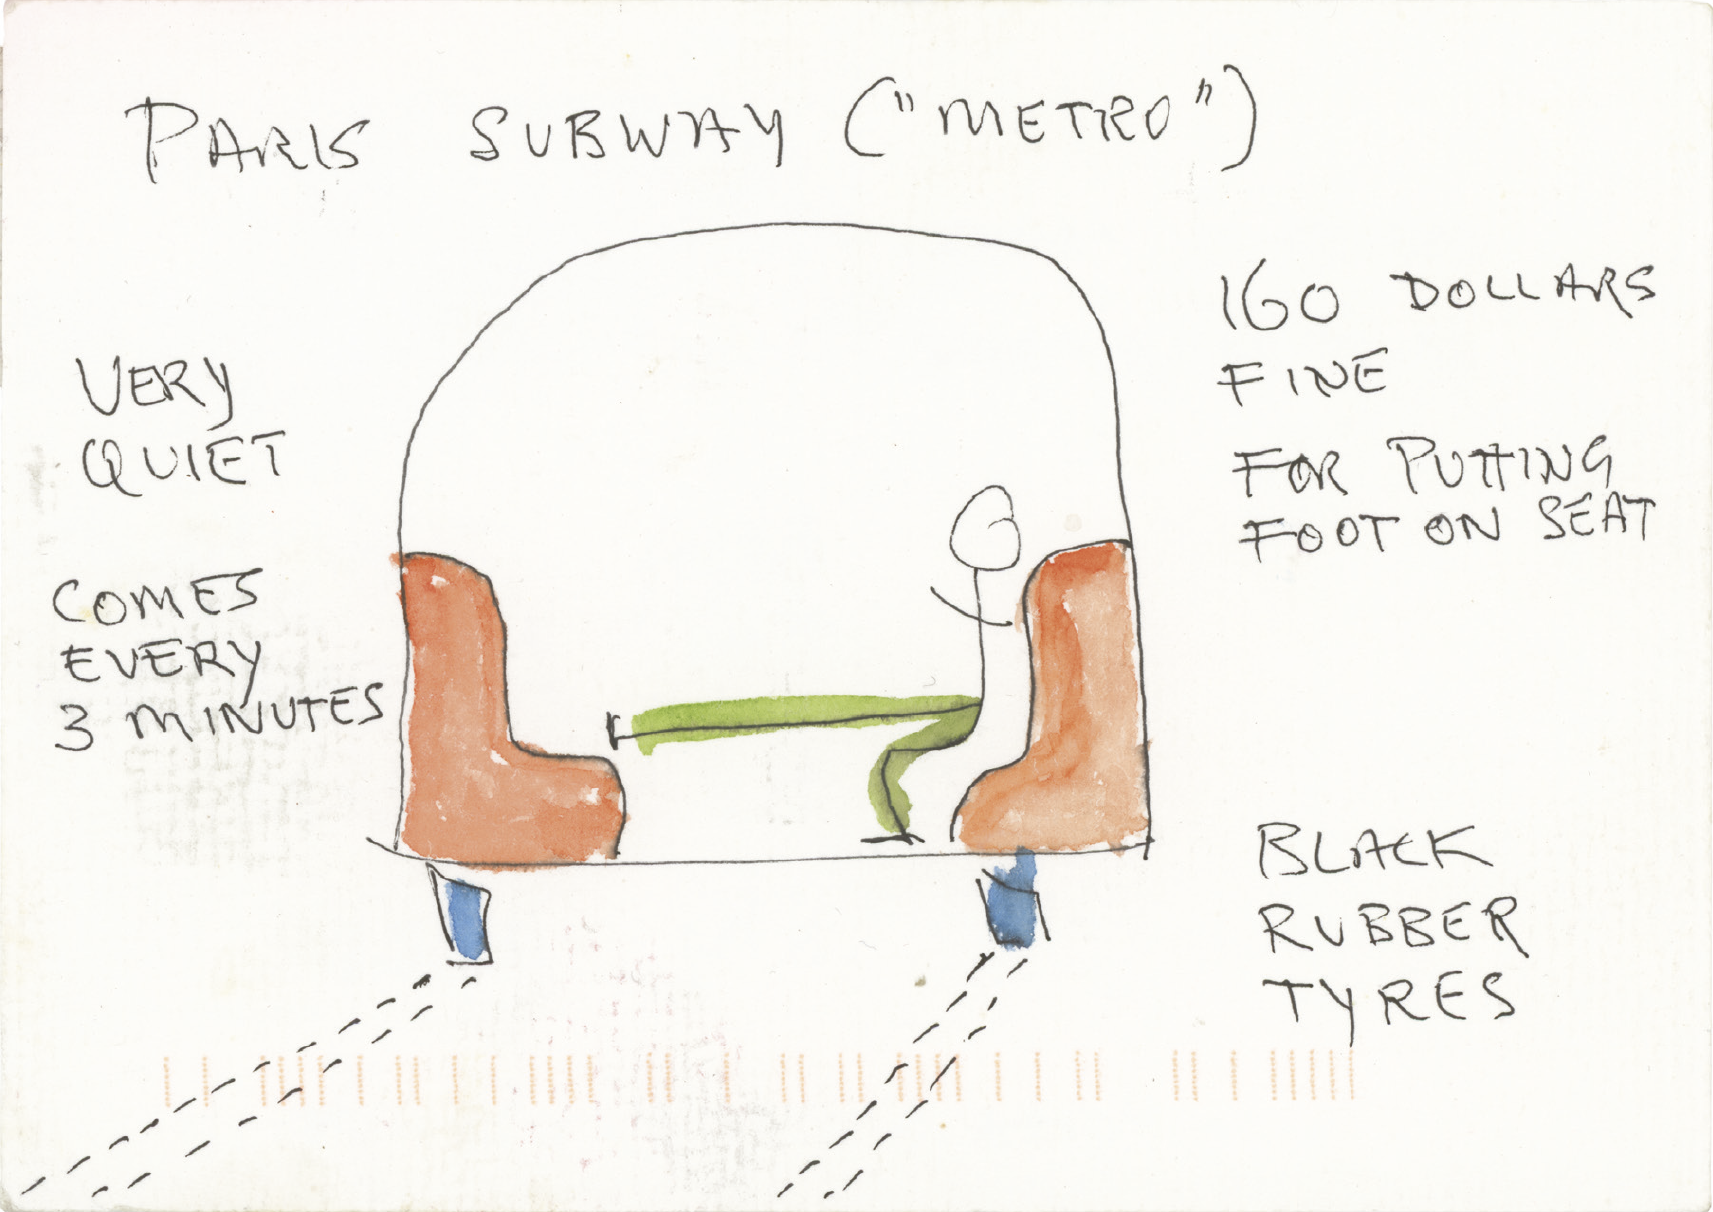 PARIS SUBWAY ("METRO")
VERY
QUIET
COMES
EVERY
3 MINUTES
160 DOLLARS
FINE
FOR PUTTING
FOOT ON SEAT
BLACK
RUBBER
TYRES